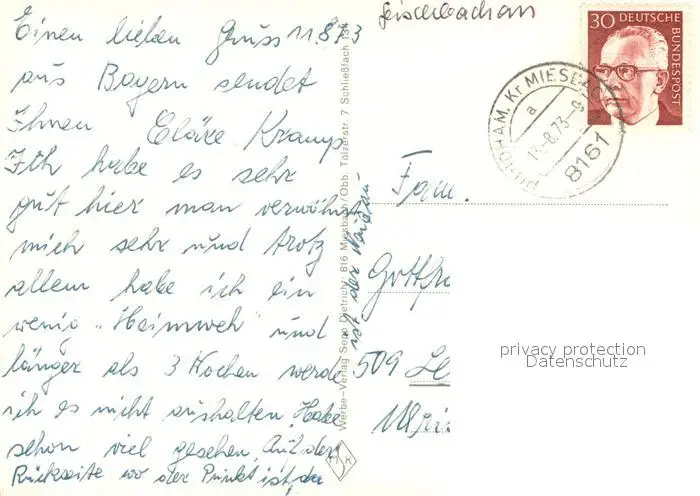 Einen lieben Gruss 11.8.73
aus Bayern sendet
Ihnen Cläre Kramp
Ich habe es sehr
gut hier man verwöhnt
mich sehr und trotz
allem habe ich ein
wenig "Heimweh" und
länger als 3 Wochen werde
ich es nicht aushalten. Habe
schon viel gesehen. Auf der
Rückseite wo der Punkt ist, da
ist der
Werbe-Verlag Sepp Dietrich, 816 Miesbach/Obb. Tölzerstr. 7 Schließfach 134
30 DEUTSCHE
BUNDESPOST
HAM, Kr MIESBACH
a
13.-8.73-9
8161
Fam.
509 Le
privacy protection
Datenschutz